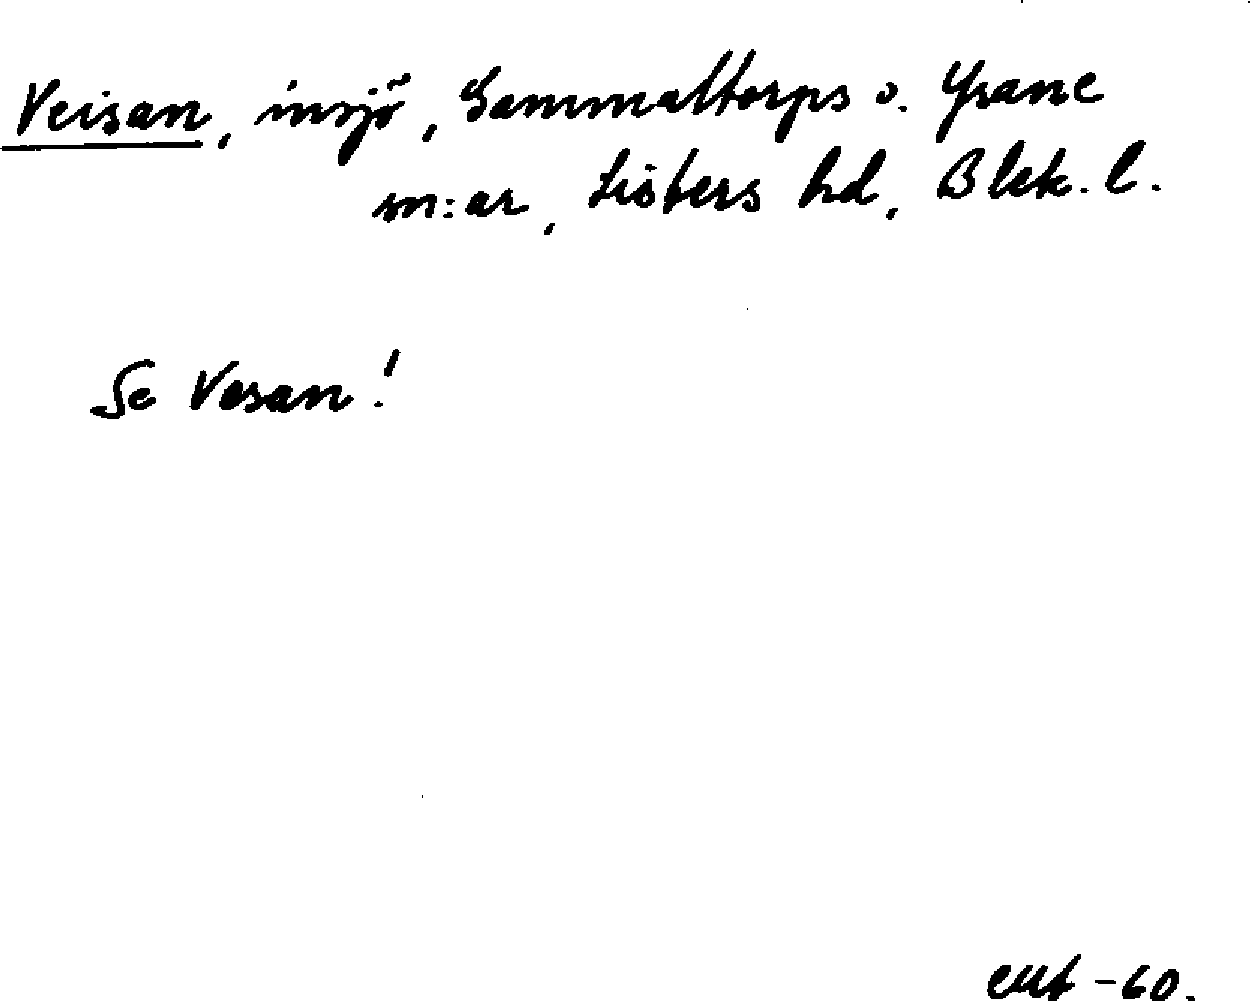 Veisan, insjö, Gammaltorps o. Ysane
m:ar, Listers hd, Blek. l.
Se Vesan!
-60.